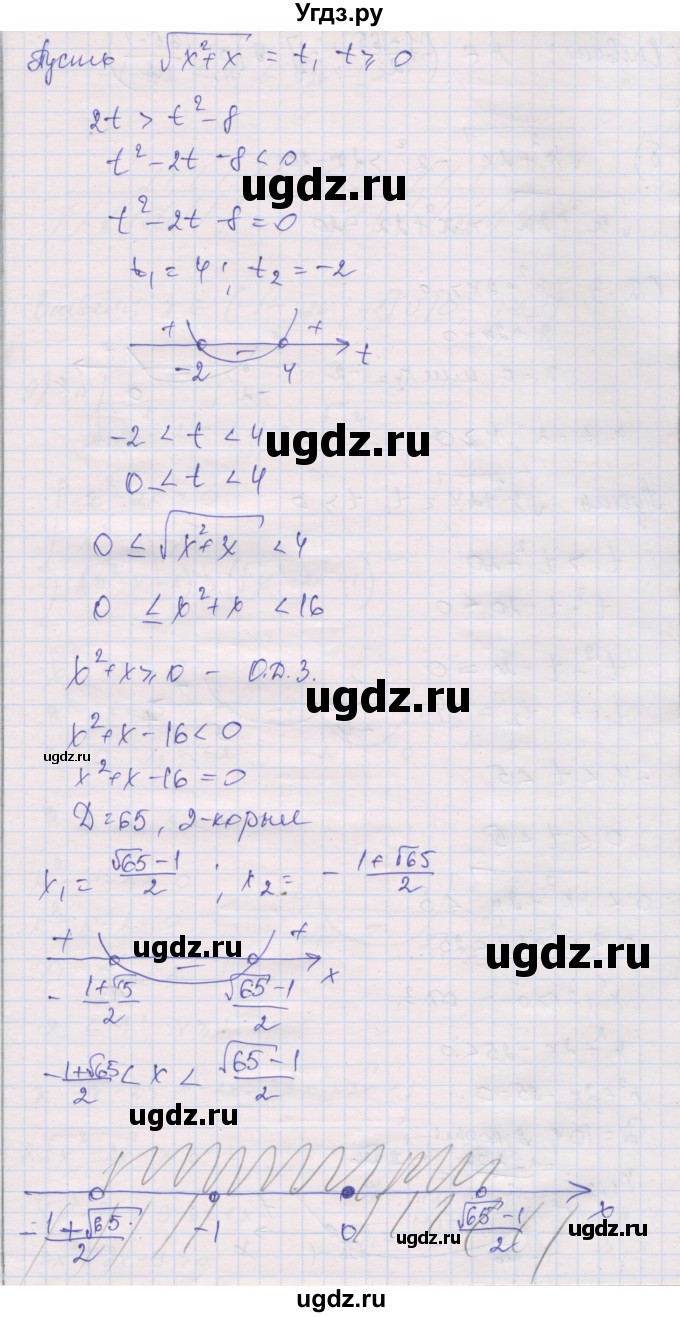 Угдз.ру
Пусть √(x²+x) = t, t ≥ 0
2t > t² - 8
t² - 2t - 8 < 0
ugdz.ru
t² - 2t - 8 = 0
t₁ = 4 ; t₂ = -2
+ - + t
-2 4
-2 < t < 4
ugdz.ru
0 ≤ t < 4
0 ≤ √(x²+x) < 4
0 ≤ x²+x < 16
x²+x ≥ 0 - О.Д.З.
ugdz.ru
x²+x-16 < 0
ugdz.ru
x²+x-16 = 0
D=65, 2-корня
x₁ = (√65-1)/2 ; x₂ = -(1+√65)/2
+ - + x
ugdz.ru
ugdz.ru
-(1+√5)/2 (√65-1)/2
-(1+√65)/2 < x < (√65-1)/2
ugdz.ru
-(1+√65)/2 -1 0 (√65-1)/2 x
ugdz.ru
ugdz.ru
ugdz.ru